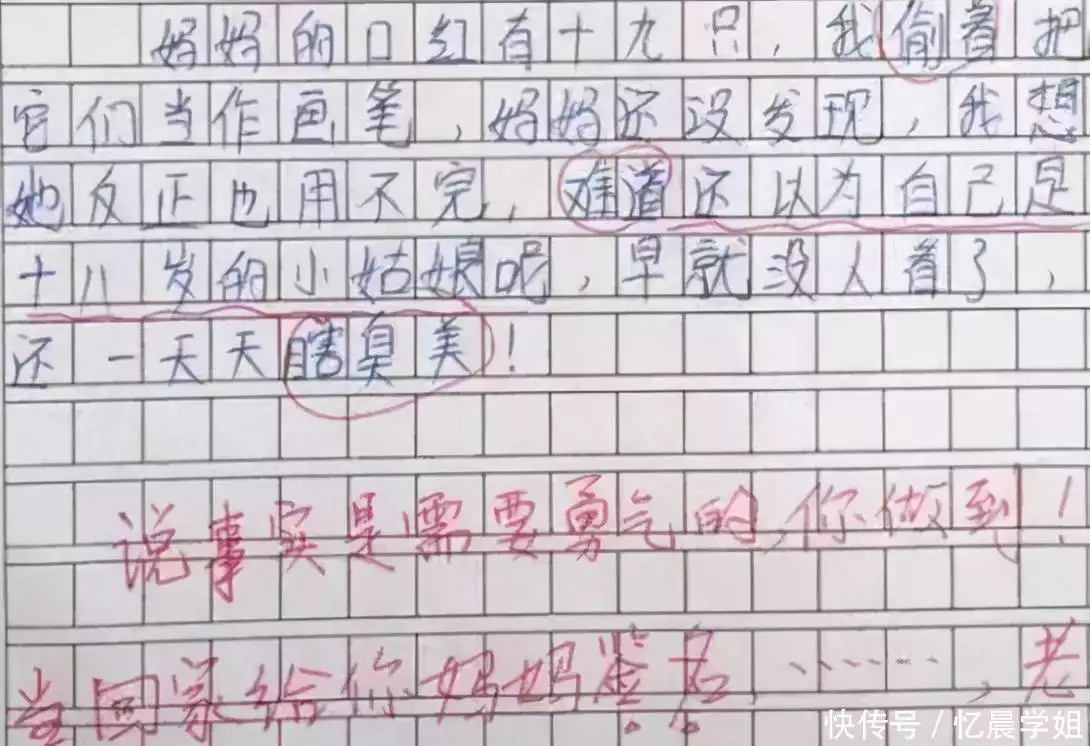 妈妈的口红有十九只，我偷着把
它们当作画笔，妈妈还没发现，我想
她反正也用不完，难道还以为自己是
十八岁的小姑娘呢，早就没人看了，
还一天天瞎臭美！
说事实是需要勇气的，你做到！
回家给你妈妈签名……，老
快传号/忆晨学姐